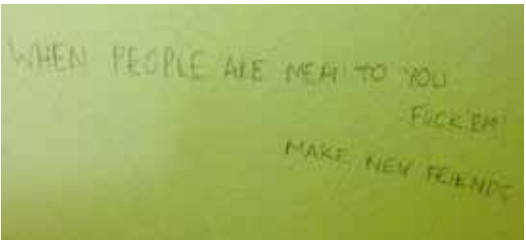 WHEN PEOPLE ARE MEAN TO YOU
FUCK 'EM
MAKE NEW FRIENDS